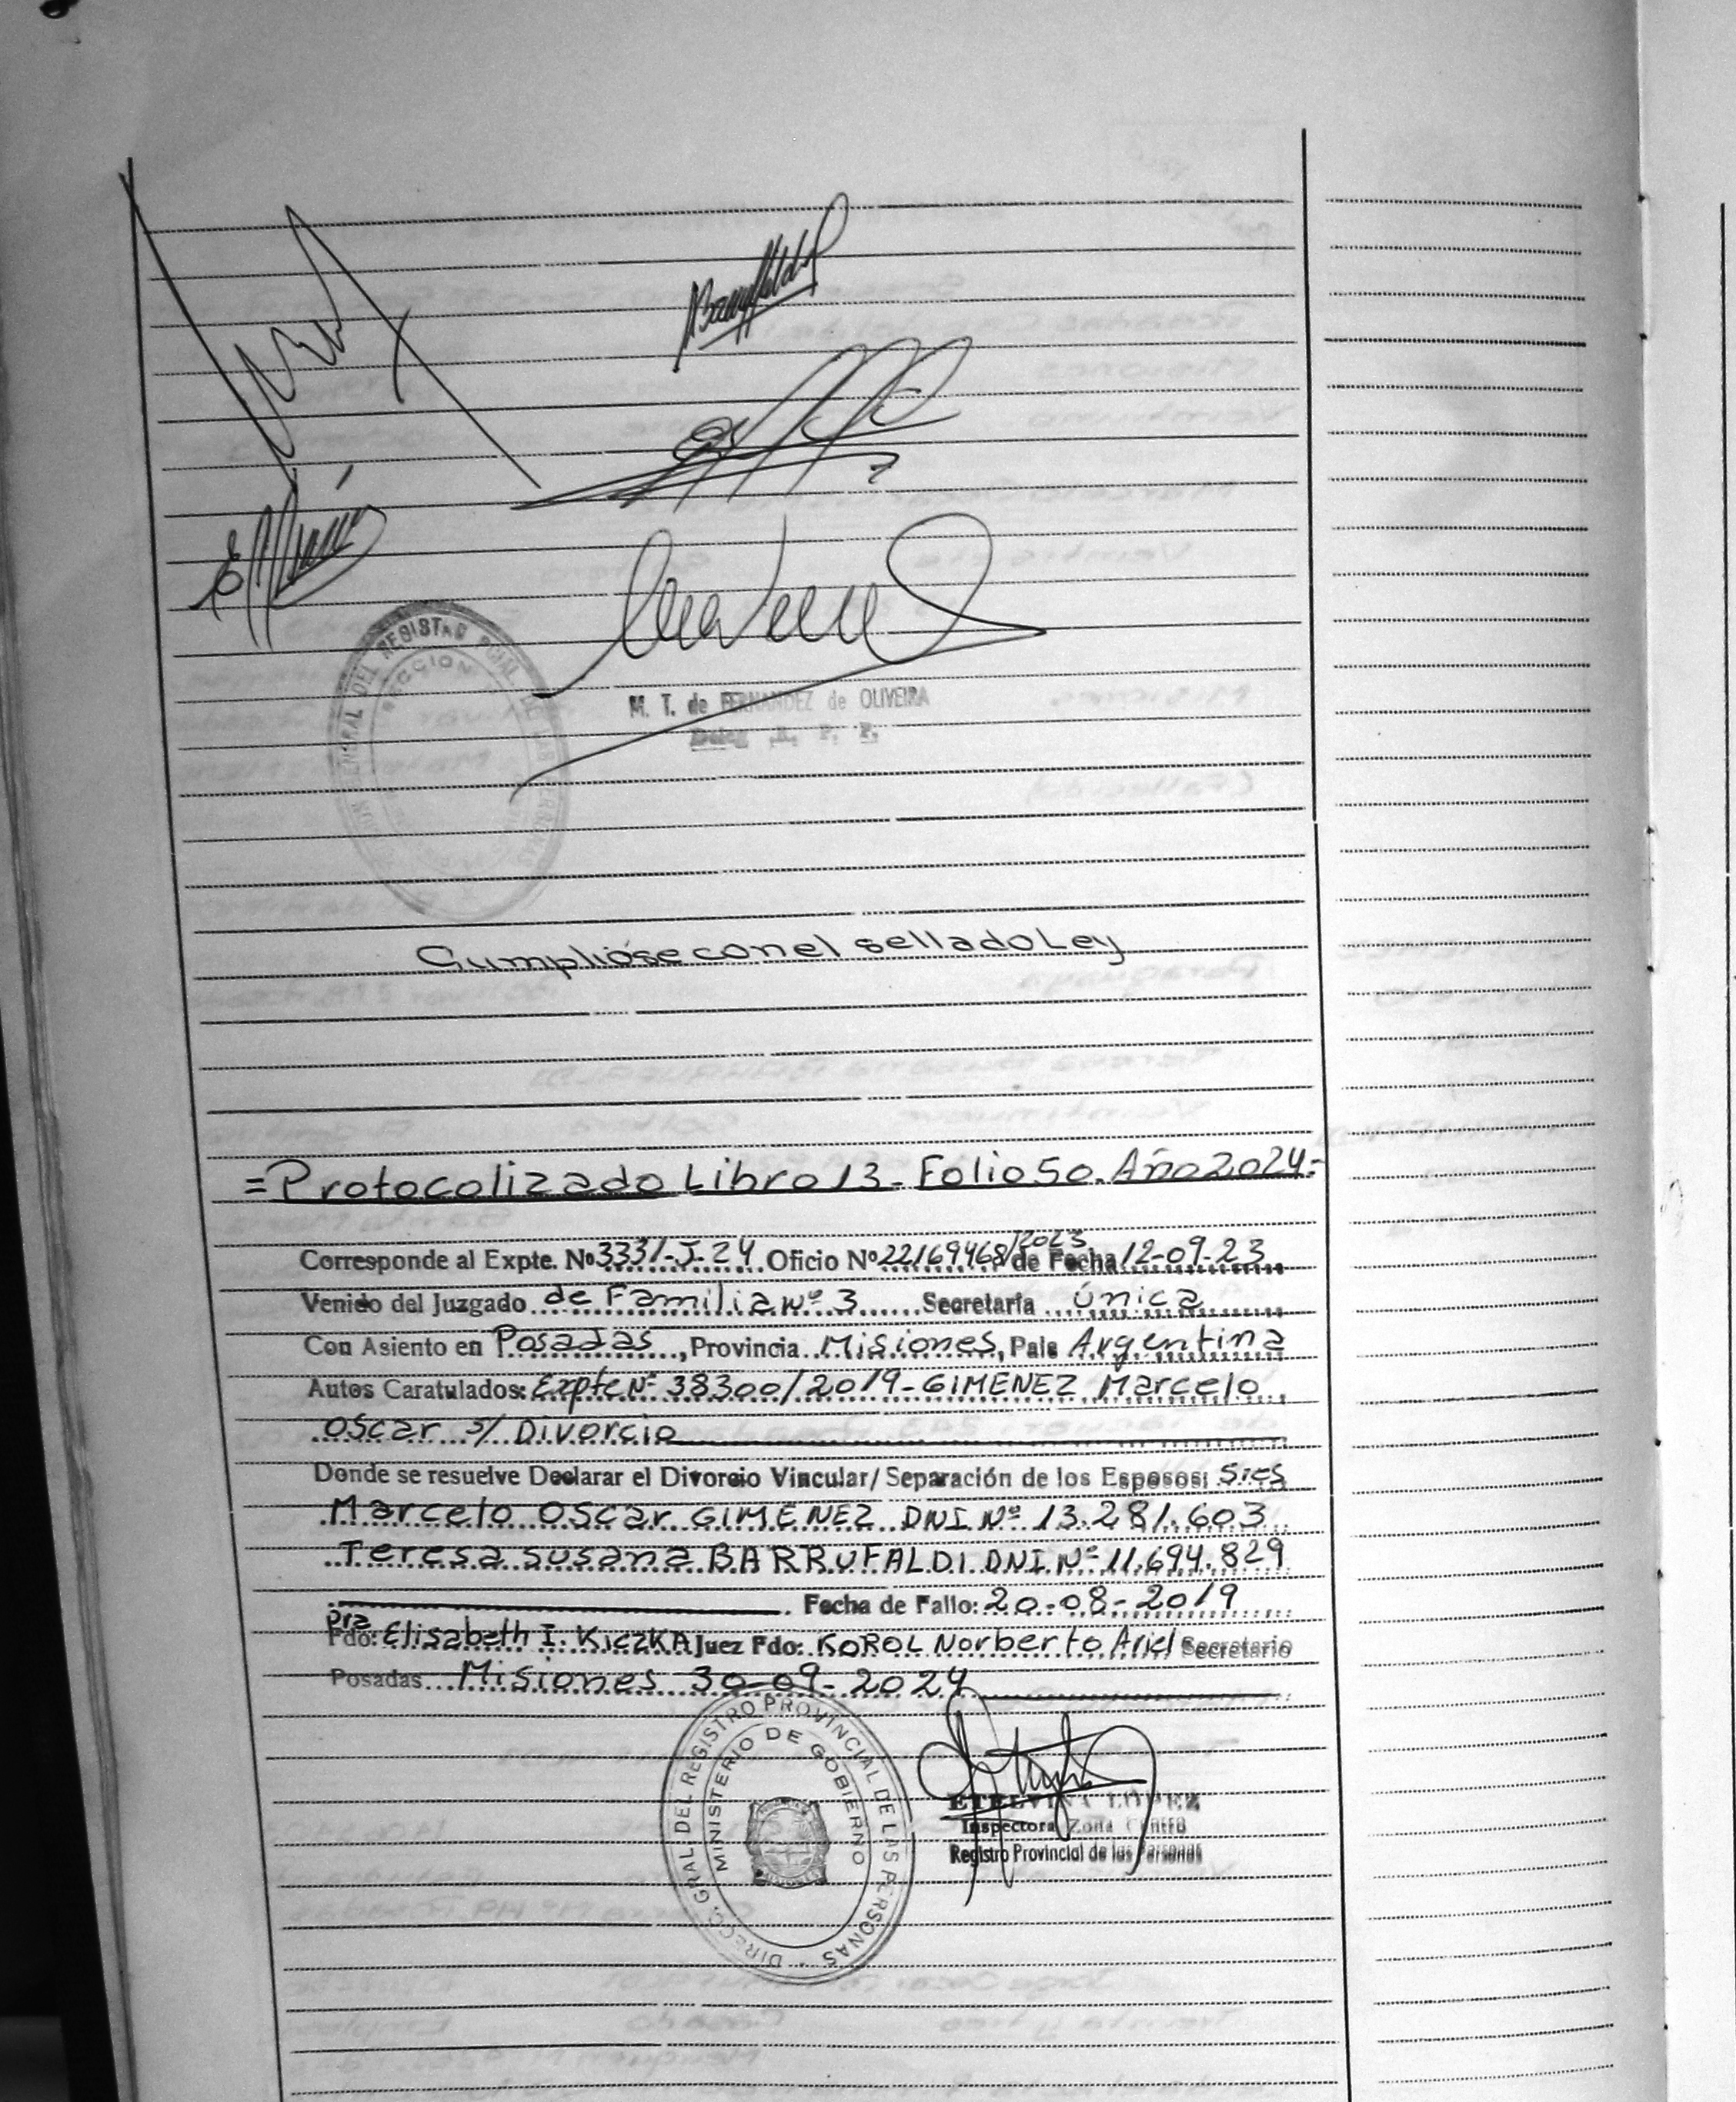 Barrufaldi
DIRECCION GENERAL DEL REGISTRO PCIAL. DE LAS PERSONAS
SECCION
M. T. de FERNANDEZ de OLIVEIRA
Deleg. R. P. P.
Cumplióse con el sellado Ley
=Protocolizado Libro 13 - Folio 50. Año 2024=
Corresponde al Expte. Nº 3331-J-24 Oficio Nº 22169468/2023 de Fecha 12-09-23
Venido del Juzgado de Familia Nº 3 Secretaría Única
Con Asiento en Posadas, Provincia Misiones, País Argentina
Autos Caratulados: Expte Nº 38300/2019-GIMENEZ Marcelo
Oscar s/ Divorcio
Donde se resuelve Declarar el Divorcio Vincular/Separación de los Esposos: Sres
Marcelo Oscar GIMENEZ DNI Nº 13.281.603
Teresa Susana BARRUFALDI DNI Nº 11.694.829
Fecha de Fallo: 20-08-2019
Fdo: Dra Elisabeth I. KICZKA Juez Fdo: KOROL Norberto Ariel Secretario
Posadas Misiones 30-09-2024
DIRECC. GRAL. DEL REGISTRO PROVINCIAL DE LAS PERSONAS
MINISTERIO DE GOBIERNO
ETELVINA LOPEZ
Inspectora Zona Centro
Registro Provincial de las Personas